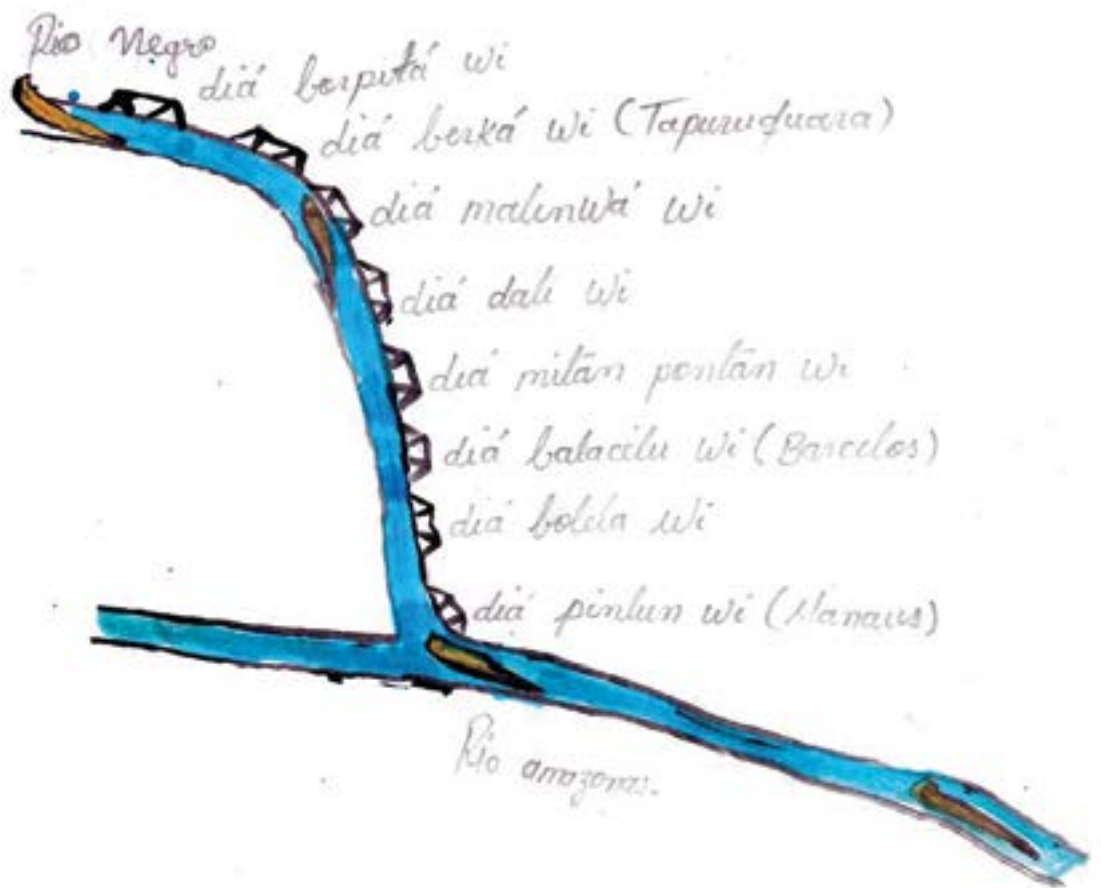 Rio Negro
diá berpitá wi
diá berká wi (Tapuruquara)
diá malinwá wi
diá dali wi
diá mitãn pontãn wi
diá balacilu wi (Barcelos)
diá bolila wi
diá pinlun wi (Manaus)
Rio amazonas.